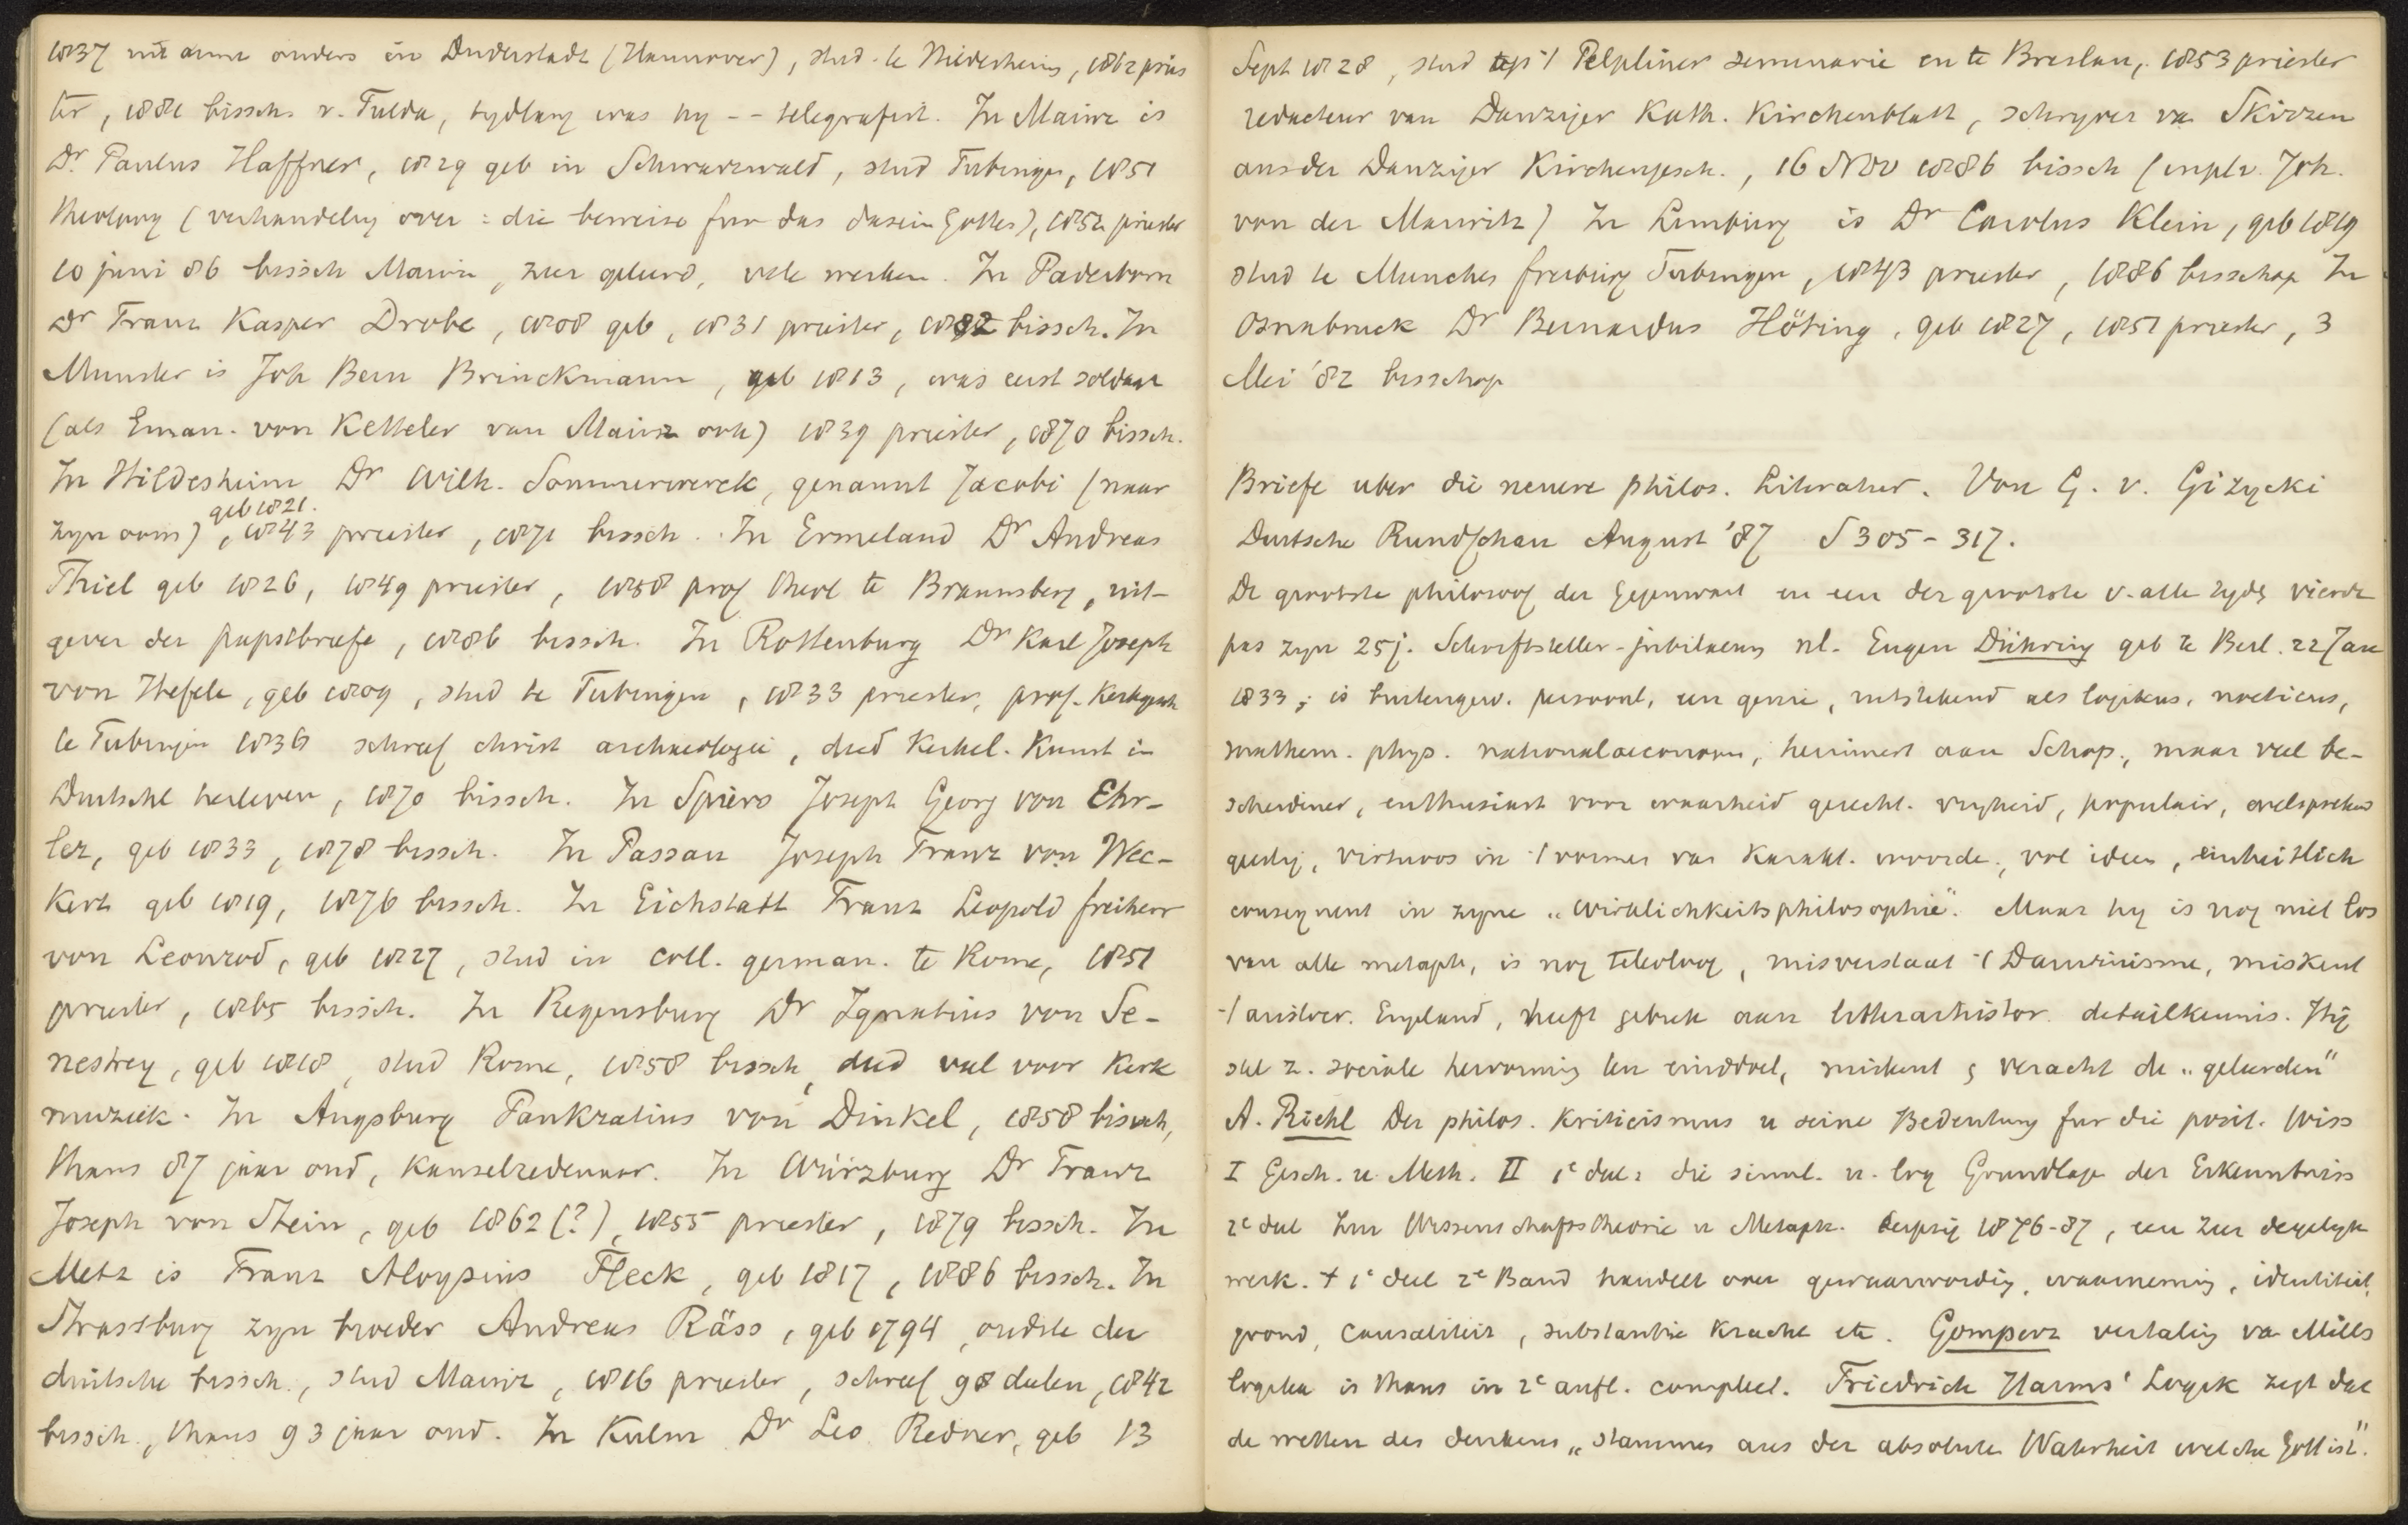 1837 uit arme ouders in Duderstadt (Hannover), stud. te Hildesheim, 1862 pries
ter, 1881 bissch. v. Fulda, tydlang was hy -- telegrafist. In Mainz is
Dr. Paulus Haffner, 1829 geb in Schwarzwald, stud Tubingen, 1851
theoloog (verhandeling over: die beweise fur das dasein Gottes), 1852 priester
10 juni 86 bissch Mainz, zeer geleerd, vele werken. In Paderborn
Dr Franz Kasper Drobe, 1808 geb, 1831 priester, 1882 bissch. In
Munster is Joh Bern Brinckmann, geb 1813, was eerst soldaat
(als Eman. von Ketteler van Mainz ook) 1839 priester, 1870 bissch.
In Hildesheim Dr Wilh. Sommerwerck, genannt Jacobi (naar
zyn oom), geb 1821. 1843 priester, 1871 bissch. In Ermeland Dr Andreas
Thiel geb 1826, 1849 priester, 1858 prof theol te Braunsberg, uit-
gever der papstbriefe, 1886 bissch. In Rottenburg Dr Karl Joseph
von Hefele, geb 1809, stud te Tubingen, 1833 priester, prof. Kerkgesch
te Tubingen 1836 schreef christ archaeologie, deed Kerkel. Kunst in
Duitschl herleven, 1870 bissch. In Spiers Joseph Georg von Ehr-
ler, geb 1833, 1878 bissch. In Passau Joseph Franz von Wec-
kert geb 1819, 1876 bissch. In Eichstatt Franz Leopold freiherr
von Leonrod, geb 1827, stud in coll. german. te Rome, 1851
priester, 1865 bissch. In Regensburg Dr Ignatius von Se-
nestrey, geb 1818, stud Rome, 1858 bissch, deed veel voor Kerk
muziek. In Augsburg Pankratius von Dinkel, 1858 bissch,
thans 87 jaar oud, Kanselredenaar. In Würzburg Dr Franz
Joseph von Stein, geb 1862 (?), 1855 priester, 1879 bissch. In
Metz is Franz Aloysius Fleck, geb 1817, 1886 bissch. In
Strassburg zyn broeder Andreas Räss, geb 1794, oudste der
duitsche bissch., stud Mainz, 1816 priester, schreef 98 delen, 1842
bissch., thans 93 jaar oud. In Kulm Dr Leo Redner, geb 13
Sept 1828, stud op 't Pelpliner seminarie en te Breslau, 1853 priester
redacteur van Danziger Kath. Kirchenblatt, schryver van Skizzen
aus der Danziger Kirchengesch., 16 Nov 1886 bissch (in pl. v. Joh.
von der Marwitz) In Limburg is Dr Carolus Klein, geb 1819
stud te Munchen freiburg Tubingen, 1843 priester, 1886 bisschop In
Osnabruck Dr Bernardus Höting, geb 1827, 1851 priester, 3
Mei '82 bisschop
Briefe uber die neuere philos. Literatur. Von G. v. Gizycki
Deutsche Rundschau August '87 S 305-317.
De grootste philosoof der Gegenwart en een der grootste v. alle tyden vierde
pas zyn 25j. Schriftsteller-jubilaeum nl. Eugen Dühring geb te Berl. 22 Jan
1833; is buitengew. persoonl. een genie, uitstekend als logikus, noeticus,
mathem. phys. nationaloeconoom, herinnert aan Schop., maar veel be-
scheidener, enthusiast voor waarheid gerecht. vryheid, populair, welsprekend
geestig, virtuoos in 't vormen van Karakt. woorden, vol ideen, einheitlich
consequent in zyne "Wirklichkeitsphilosophie". Maar hy is nog niet los
van alle metaph, is nog teleoloog, misverstaat 't Darwinisme, miskent
't buitl. Engeland, heeft gebrek aan litterarhistor. detailkennis. Hij
stelt z. sociale hervorming ten einddoel, miskent & veracht de "geleerden"
A. Riehl Der philos. Kriticismus u seine Bedeutung fur die posit. Wiss
I Gesch. u. Meth. II 1e deel: die sinnl. u. log Grundlage der Erkenntniss
2e deel Zur Wissenschaftstheorie u Metaph. Leipzig 1876-87, een zeer degelyk
werk. 't 1e deel 2e Band handelt over gewaarwording, waarneming, identiteit,
grond, causaliteit, substantie kracht etc. Gomperz vertaling van Mills
logika is thans in 2e aufl. compleet. Friedrich Harms' Logik zegt dat
de wetten des denkens "stammen aus der absoluten Wahrheit welche Gott ist".